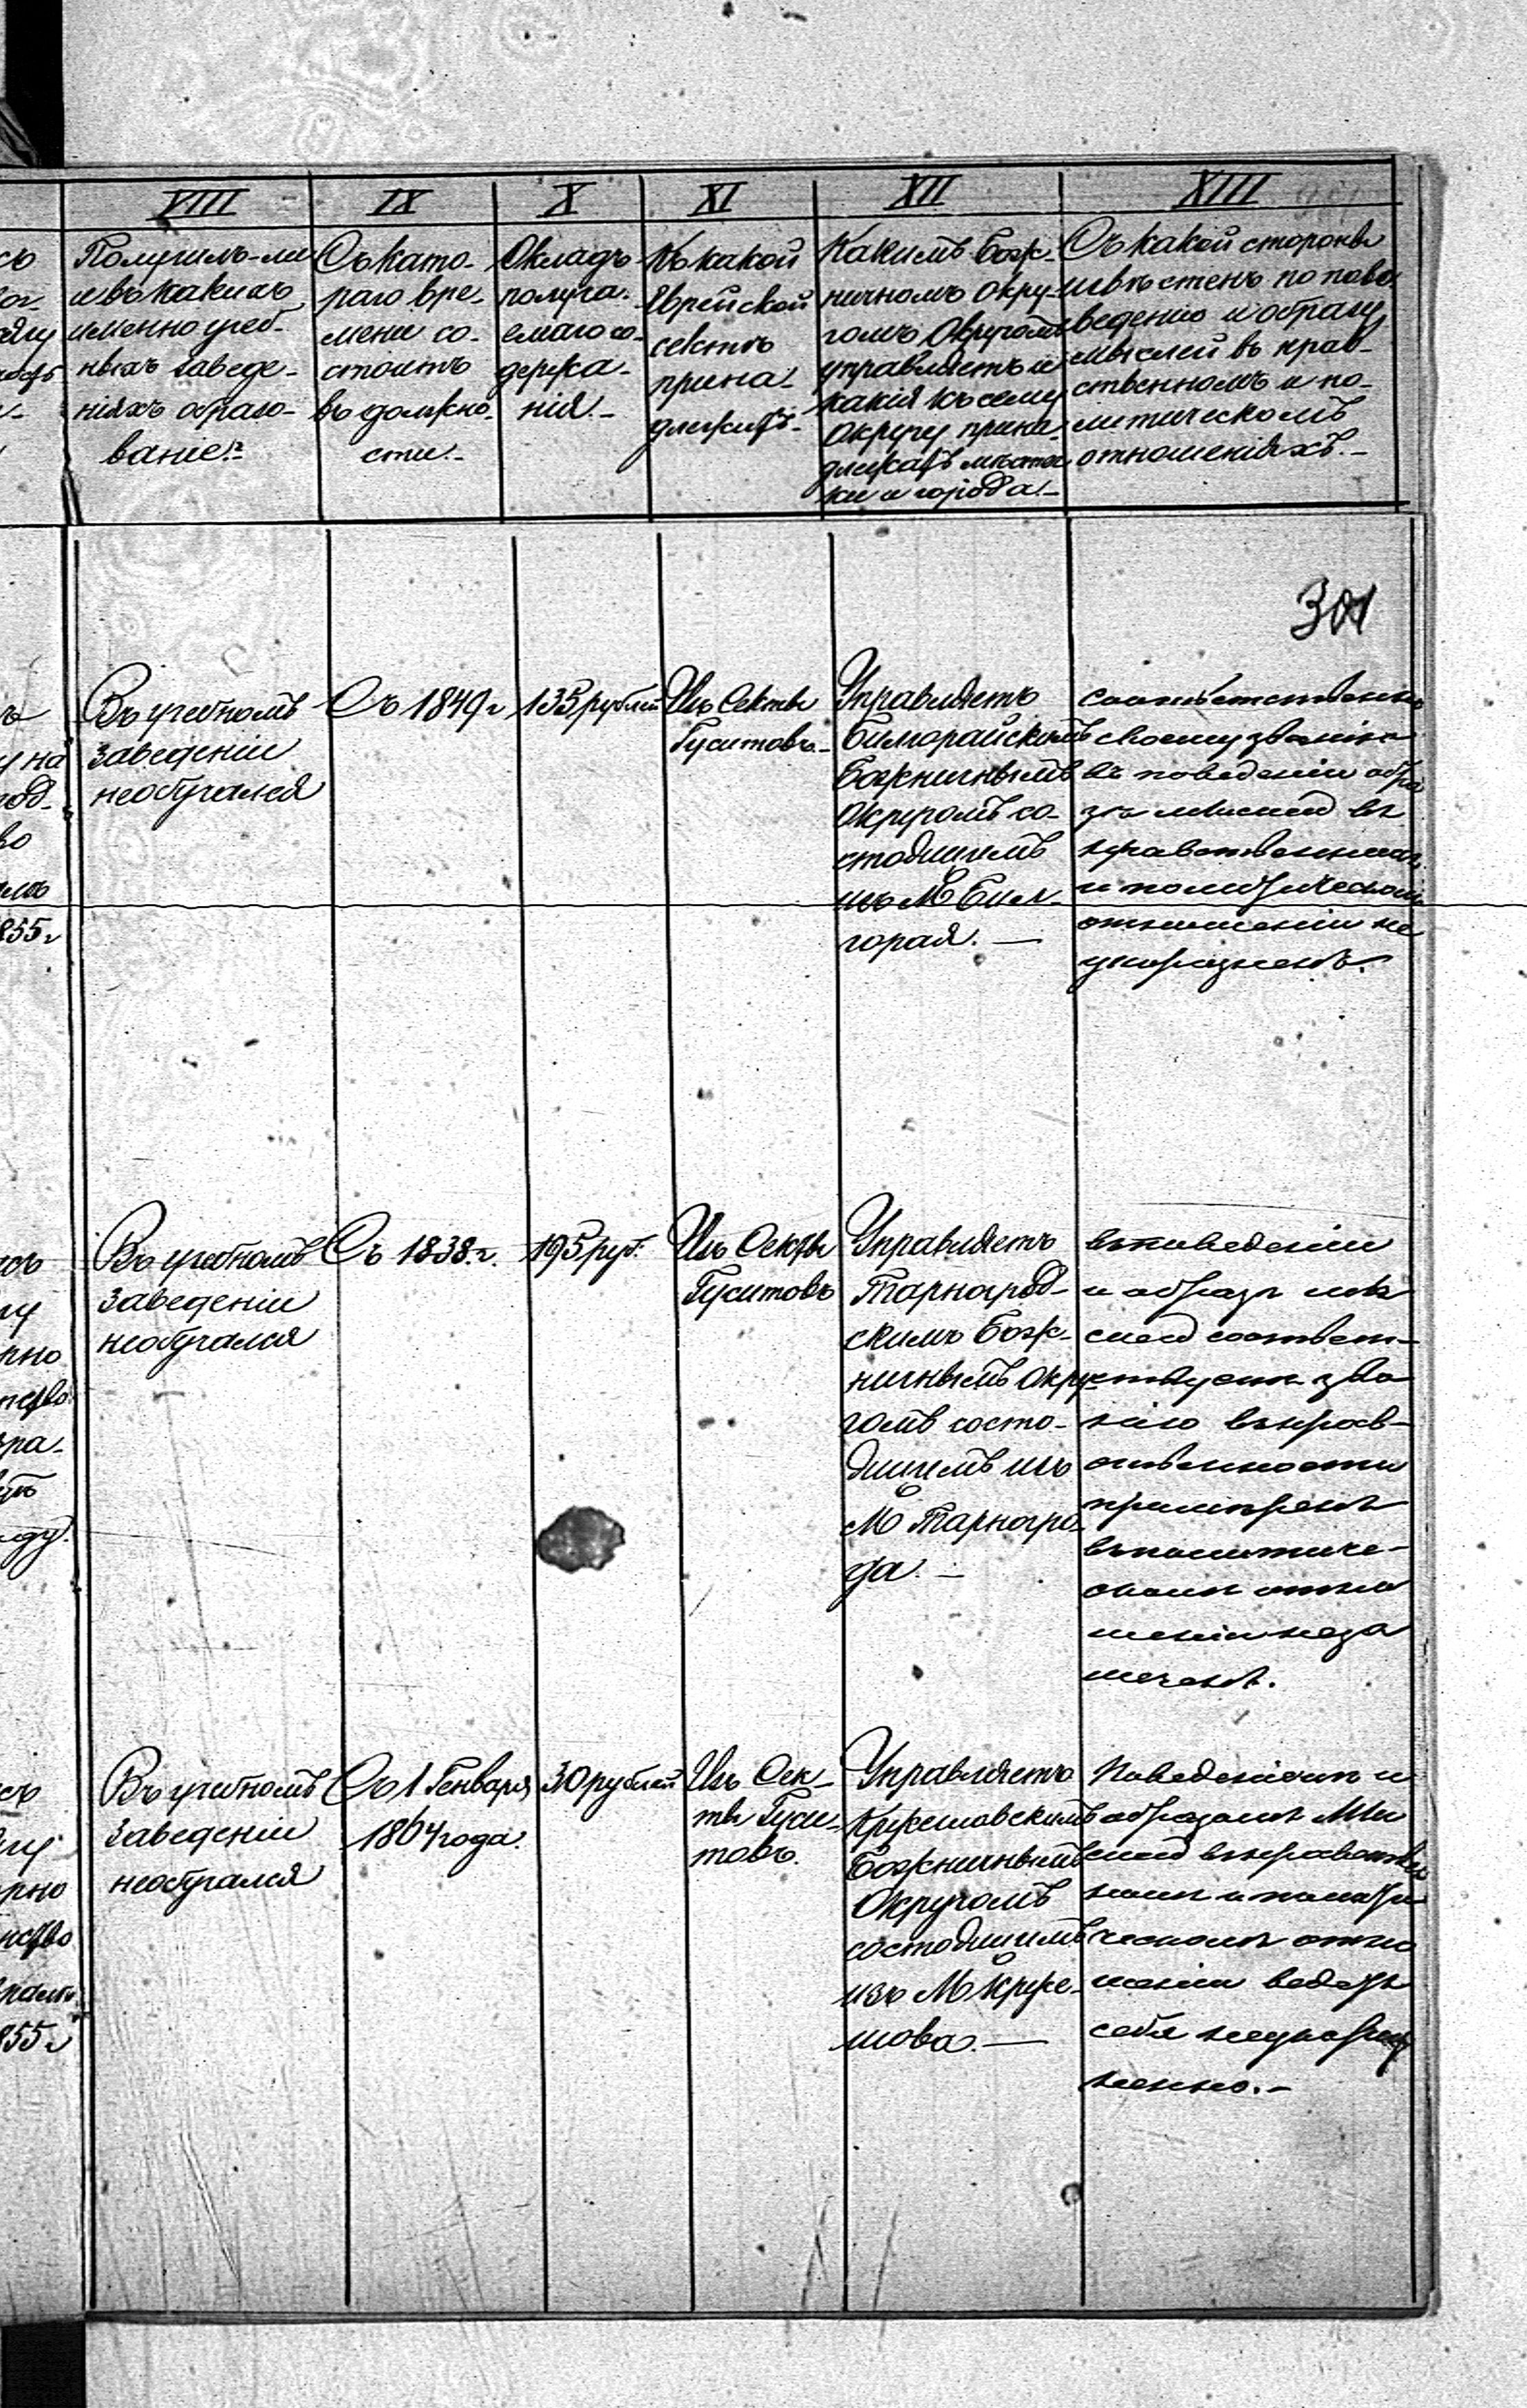 VIII
IX
X
XI
XII
XIII
Получилъ-ли
и въ какихъ
именно учеб-
ныхъ заведе-
ніяхъ образо-
ваніе?-
Съ кото-
раго вре-
мени со-
стоитъ
въ должно-
сти.-
Окладъ
получа-
емаго со-
держа-
нія.-
Къ какой
Еврейской
сектѣ
прина-
длежитъ-
Какимъ Бож-
ничномъ Окру-
гомъ Округомъ
управляетъ и
какія къ сему
Округу прина-
длежатъ мѣстеч-
ки и города.-
Съ какой стороны
извѣстенъ по пове-
денію и образу
мыслей въ нрав-
ственномъ и по-
литическомъ
отношеніяхъ.-
301
Въ учебномъ
заведеніи
необучался
Съ 1849 г
135 рублей
Изъ Секты
Гуситовъ.-
Управляетъ
Билгорайскимъ
Божничнымъ
Округомъ со-
стоящимъ
изъ М Бил-
горая.-
соотвѣтственно
своему званію
въ поведеніи обра
зѣ мыслей въ
нравственномъ
и политическомъ
отношеніи не
укоризненъ.
Въ учебномъ
заведеніи
необучался
Съ 1838 г.
195 руб.
Изъ Секты
Гуситовъ
Управляетъ
Тарногрод-
скимъ Бож-
ничнымъ Окру-
гомъ состо-
ящимъ изъ
М Тарногро-
да.-
въ поведеніи
и образѣ мы
слей соотвѣт-
ствуетъ зва
нію въ нрав-
ственности
примѣренъ
въ политиче-
скомъ отно
шеніи неза
меченъ.
Въ учебномъ
заведеніи
необучался
Съ 1 Генваря
1864 года.
30 рублей
Изъ Сек-
ты Гуси-
товъ.
Управляетъ
Кржешовскимъ
Божничнымъ
Округомъ
состоящимъ
изъ М Крже-
шова.-
Поведеніемъ и
образомъ Мы
слей въ нравствен
номъ и полити
ческомъ отно
шеніи ведетъ
себя неукориз
ненно.-